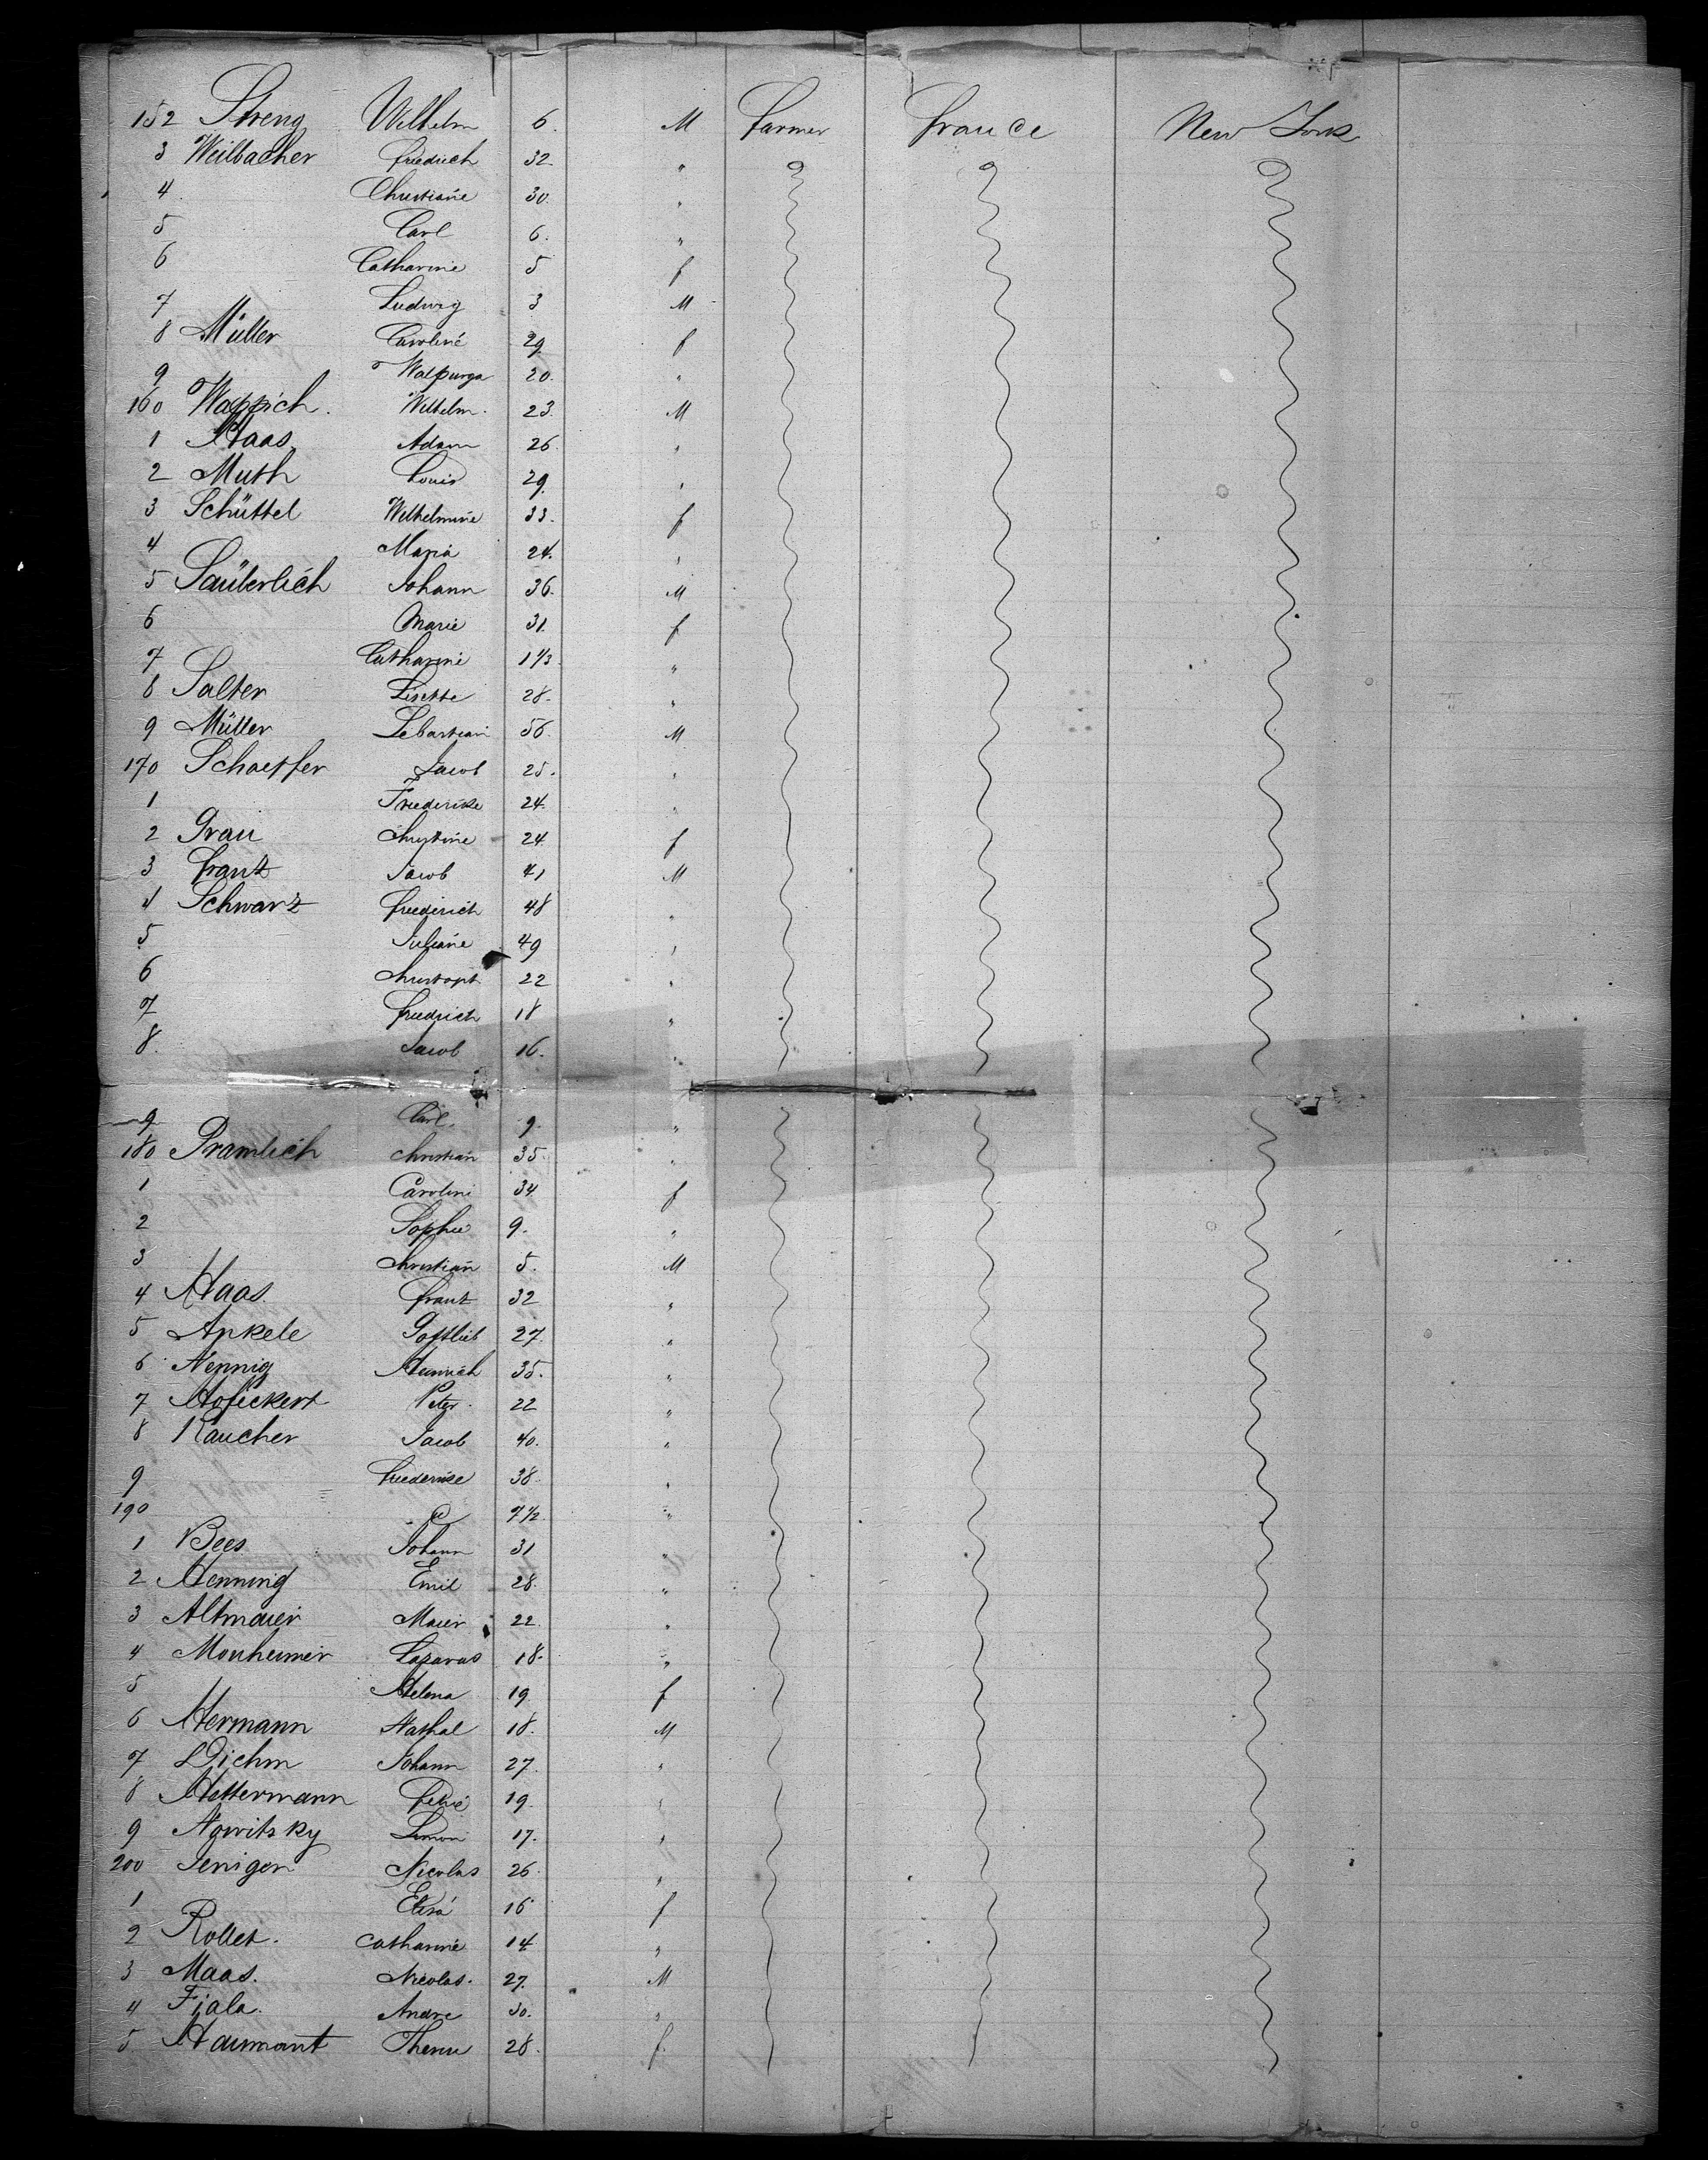 152 Streng Wilhelm 6. M farmer france New York
3 Weilbacher friedrich 32 "
4 Christiane 30. "
5 Carl 6. "
6 Catharine 5 f
7 Ludwig 3 M
8 Müller Caroline 29 f
9 Walpurga 20. "
160 Wappich. Wilhelm. 23. M
1 Haas Adam 26 "
2 Muth Louis 29. "
3 Schüttel Wilhelmine 33. f
4 Maria 24. "
5 Saüberlich Johann 36. M
6 Marie 31. f
7 Catharine 1 1/3 "
8 Salter Lisette 28. "
9 Müller Sebastian 56. M
170 Schaeffer Jacob 25. "
1 Friederike 24. "
2 Grau Christine 24 f
3 frantz Jacob 41 M
4 Schwarz friederich 48 "
5 Juliane 49 "
6 Christoph 22 "
7 friedrich 18 "
8. Jacob 16. "
9 Carl. 9. "
180 Pramlich christian 35 "
1 Caroline 34 f
2 Sophie 9. "
3 Christian 5. M
4 Haas franz 32 "
5 Ankele Gottlieb 27 "
6 Nennig Heinrich 35. "
7 Hofickert Peter. 22 "
8 Raucher Jacob 40. "
9 friederike 38. "
190 7 1/2 "
1 Bees Johann 31 "
2 Henning Emil 28. "
3 Altmaier Maier 22. "
4 Monheimer Lazarus 18. "
5 Helena 19 f
6 Hermann Nathal 18. M
7 Diehm Johann 27. "
8 Hettermann 19. "
9 Nowitsky Simon 17. "
200 Jeniger Nicolas 26. "
1 Elisa 16 f
2 Rollet. Catharine 14 "
3 Maas. Nicolas. 27. M
4 Fiala. Andre 30. "
5 Haumant 28. f.